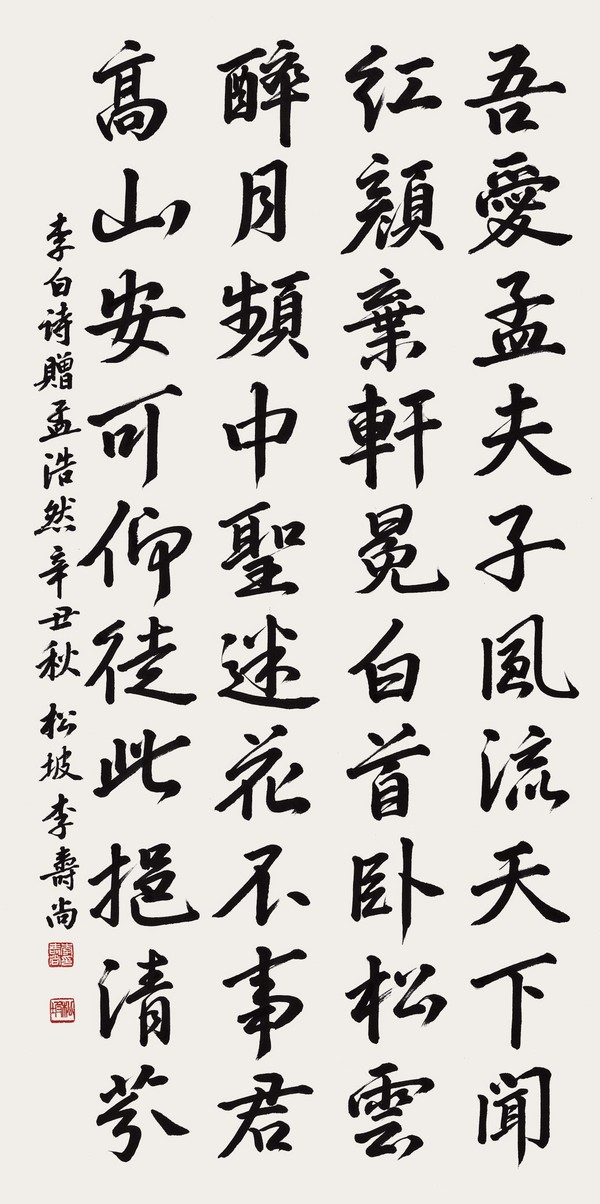 吾愛孟夫子風流天下聞
紅顏棄軒冕白首卧松雲
醉月頻中聖迷花不事君
高山安可仰徒此挹清芬
李白诗贈孟浩然辛丑秋松坡李壽尚